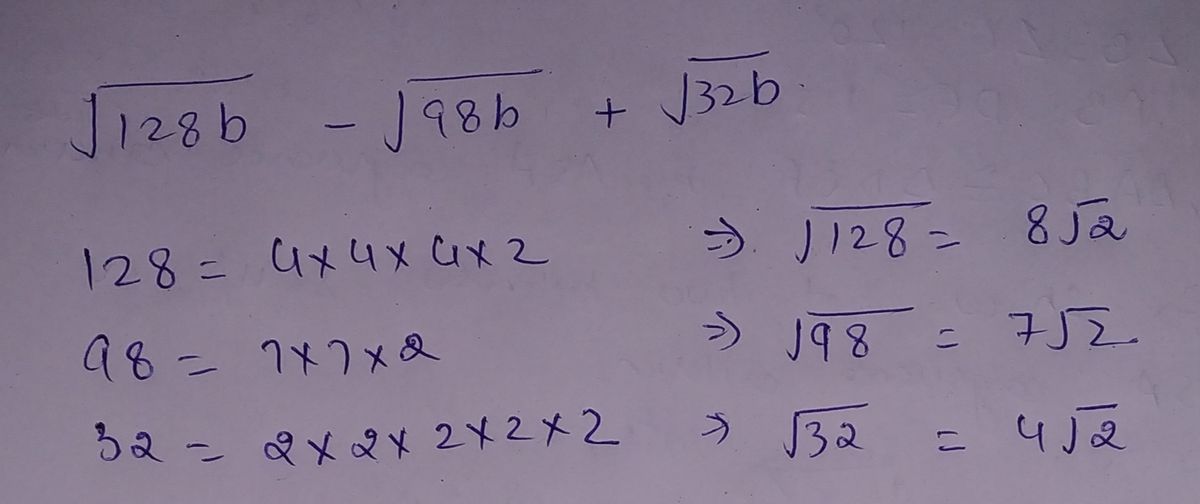 √128b - √98b + √32b
128 = 4×4×4×2 ⇒ √128 = 8√2
98 = 7×7×2 ⇒ √98 = 7√2
32 = 2×2×2×2×2 ⇒ √32 = 4√2